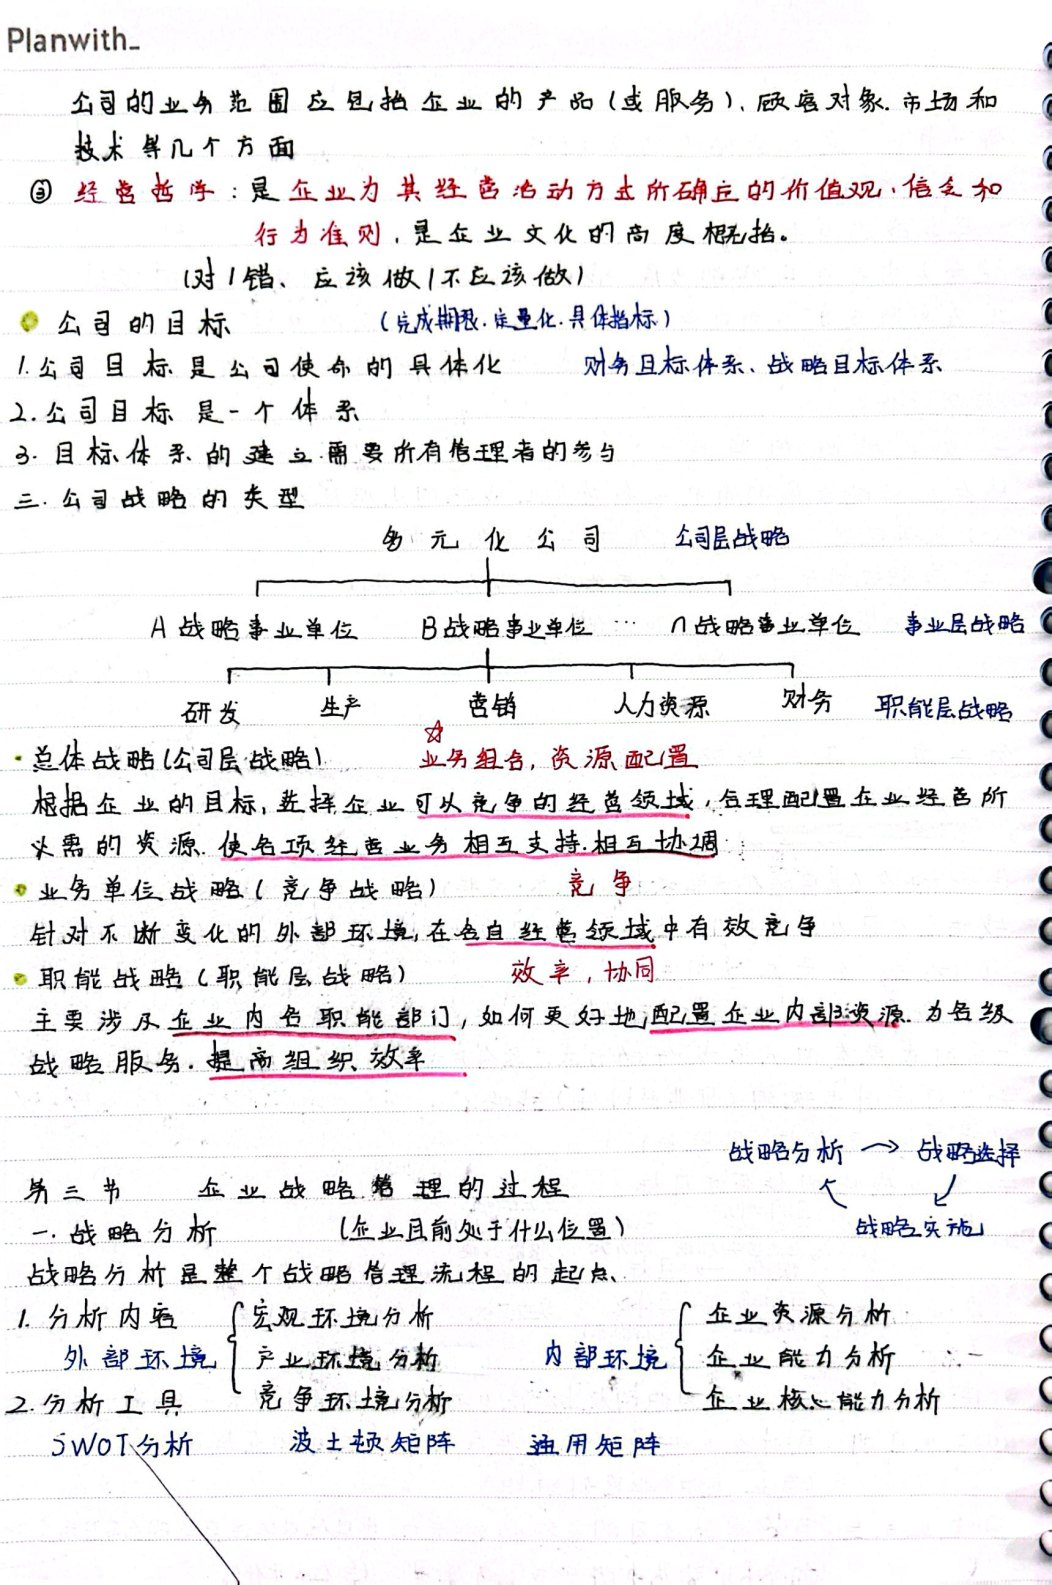 Planwith_
公司的业务范围应包括企业的产品(或服务)、顾客对象、市场和
技术等几个方面
③ 经营哲学:是企业为其经营活动方式所确立的价值观、信念和
行为准则,是企业文化的高度概括。
(对/错、应该做/不应该做)
公司的目标 (完成期限、定量化、具体指标)
1.公司目标是公司使命的具体化 财务目标体系、战略目标体系
2.公司目标是一个体系
3.目标体系的建立需要所有管理者的参与
三.公司战略的类型
多元化公司 公司层战略
A战略事业单位 B战略事业单位 … n战略事业单位 事业层战略
研发 生产 营销 人力资源 财务 职能层战略
·总体战略(公司层战略) ☆业务组合,资源配置
根据企业的目标,选择企业可以竞争的经营领域,合理配置企业经营所
必需的资源.使各项经营业务相互支持.相互协调
业务单位战略(竞争战略) 竞争
针对不断变化的外部环境,在各自经营领域中有效竞争
职能战略(职能层战略) 效率,协同
主要涉及企业内各职能部门,如何更好地配置企业内部资源.为各级
战略服务.提高组织效率
战略分析 → 战略选择
第三节 企业战略管理的过程
战略实施
一.战略分析 (企业目前处于什么位置)
战略分析是整个战略管理流程的起点、
1.分析内容 宏观环境分析 企业资源分析
外部环境 产业环境分析 内部环境 企业能力分析
竞争环境分析 企业核心能力分析
2.分析工具
SWOT分析 波士顿矩阵 通用矩阵